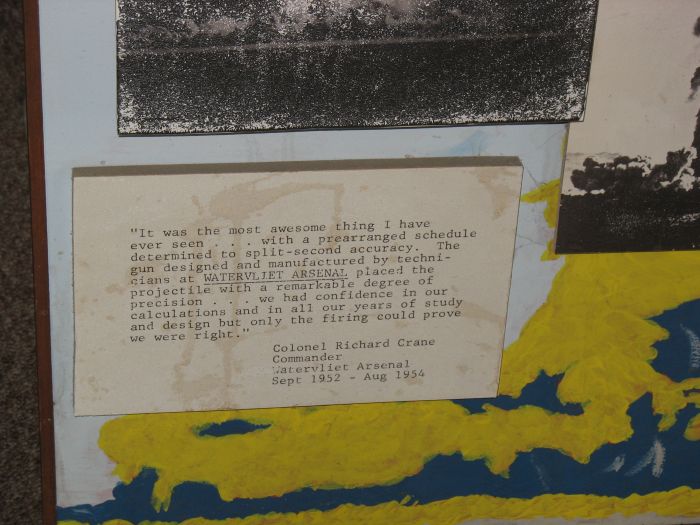 "It was the most awesome thing I have
ever seen . . . with a prearranged schedule
determined to split-second accuracy.  The
gun designed and manufactured by techni-
cians at WATERVLIET ARSENAL placed the
projectile with a remarkable degree of
precision . . . we had confidence in our
calculations and in all our years of study
and design but only the firing could prove
we were right."
Colonel Richard Crane
Commander
Watervliet Arsenal
Sept 1952 - Aug 1954